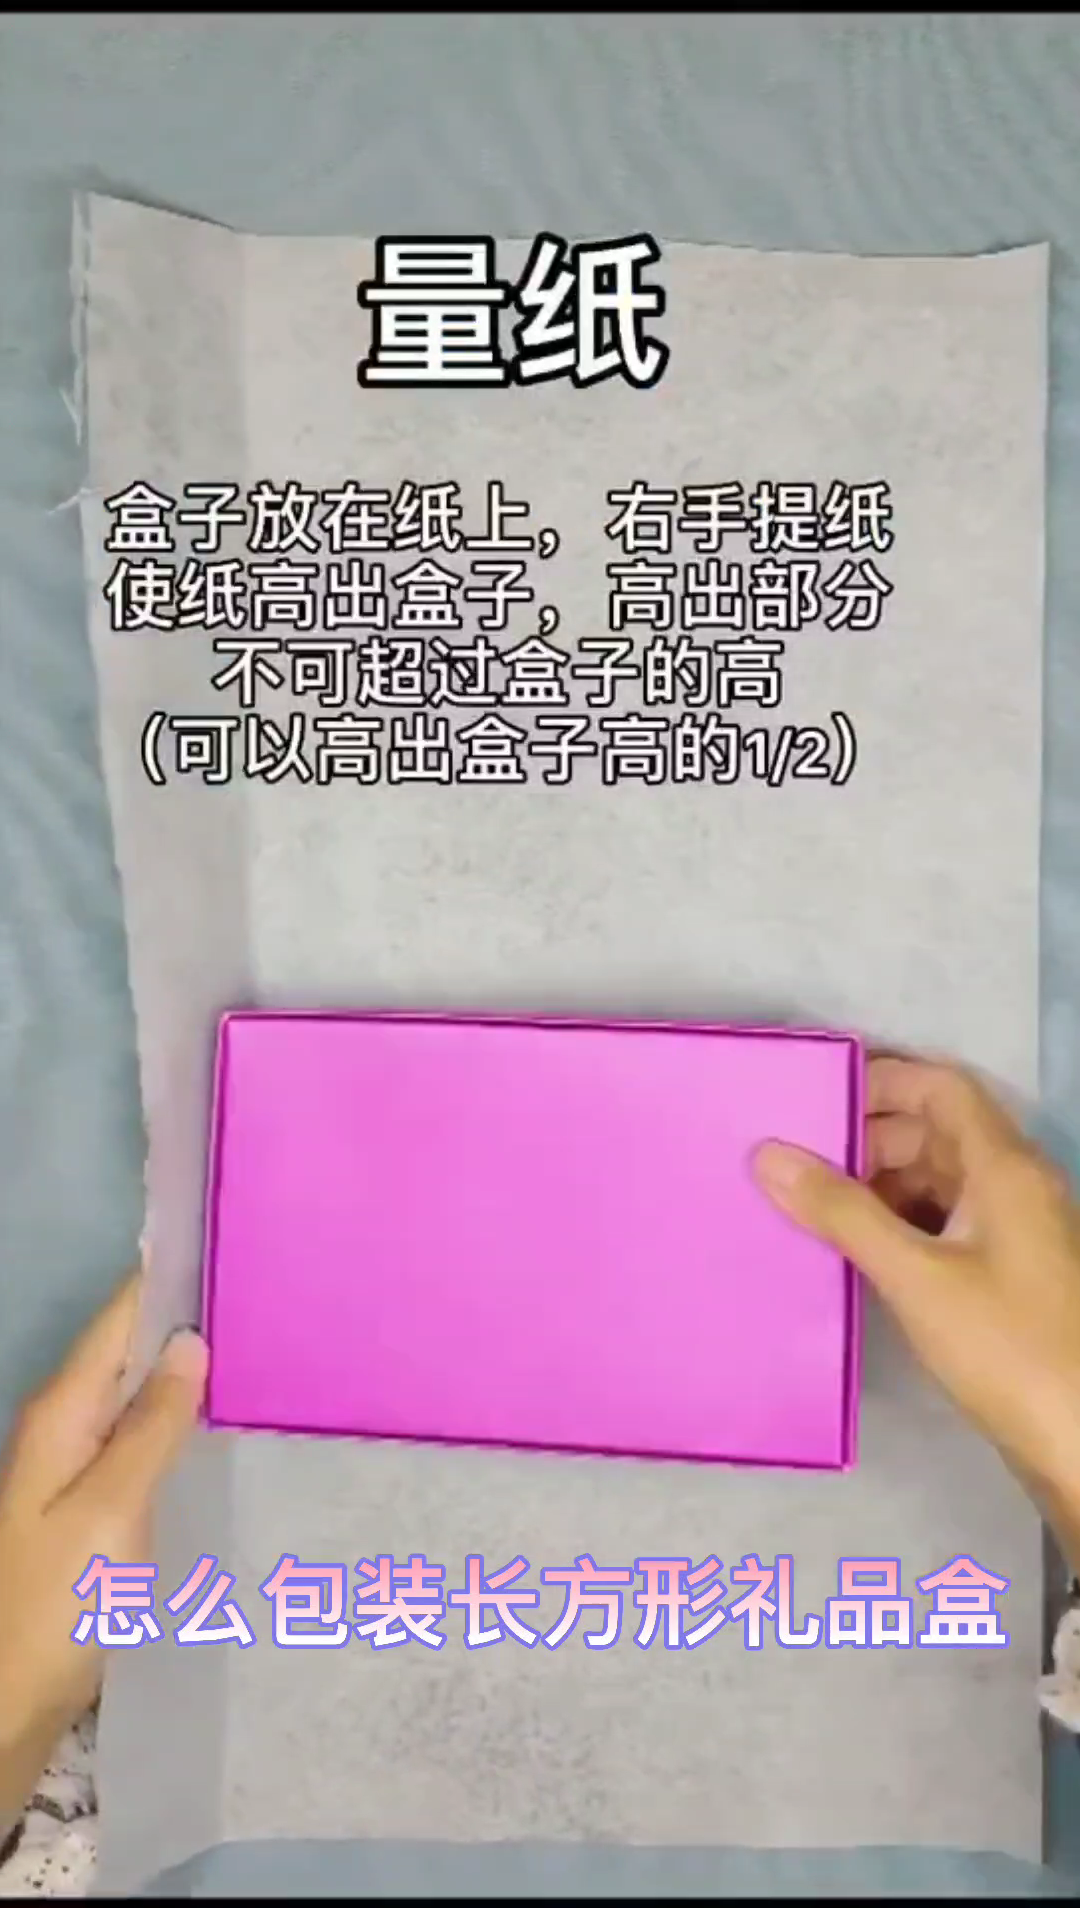 量纸
盒子放在纸上，右手提纸
使纸高出盒子，高出部分
不可超过盒子的高
（可以高出盒子高的1/2）
怎么包装长方形礼品盒